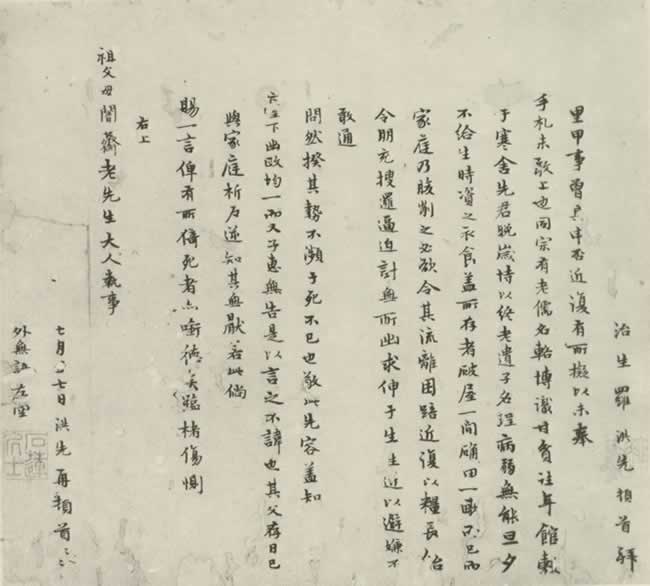 治生羅洪先頓首拜
里甲事曾具申否近復有所擬以未奉
手札未敢上也同宗有老儒名輅博識甘貧往年館穀
于寒舍先君晚歲恃以終老遺子名珵病弱無能旦夕
不給生時資之衣食蓋所存者破屋一間硗田一畝不已而
家庭乃朘削之必欲令其流離困踣近復以糧長
令朋充搜邏逼迫計無所出求伸于生生近以避嫌不
敢通
問然揆其勢不瀕于死不已也敬此先容蓋知
下出政均一而又子惠無告是以言之不諱也其父存日已
與家庭析居逆知其無厭若此倘
賜一言俾有所倚死者亦啣德矣臨楮傷惻
右上
祖父母誾齋老先生大人執事
七月八七日洪先再頓首
外無 左空